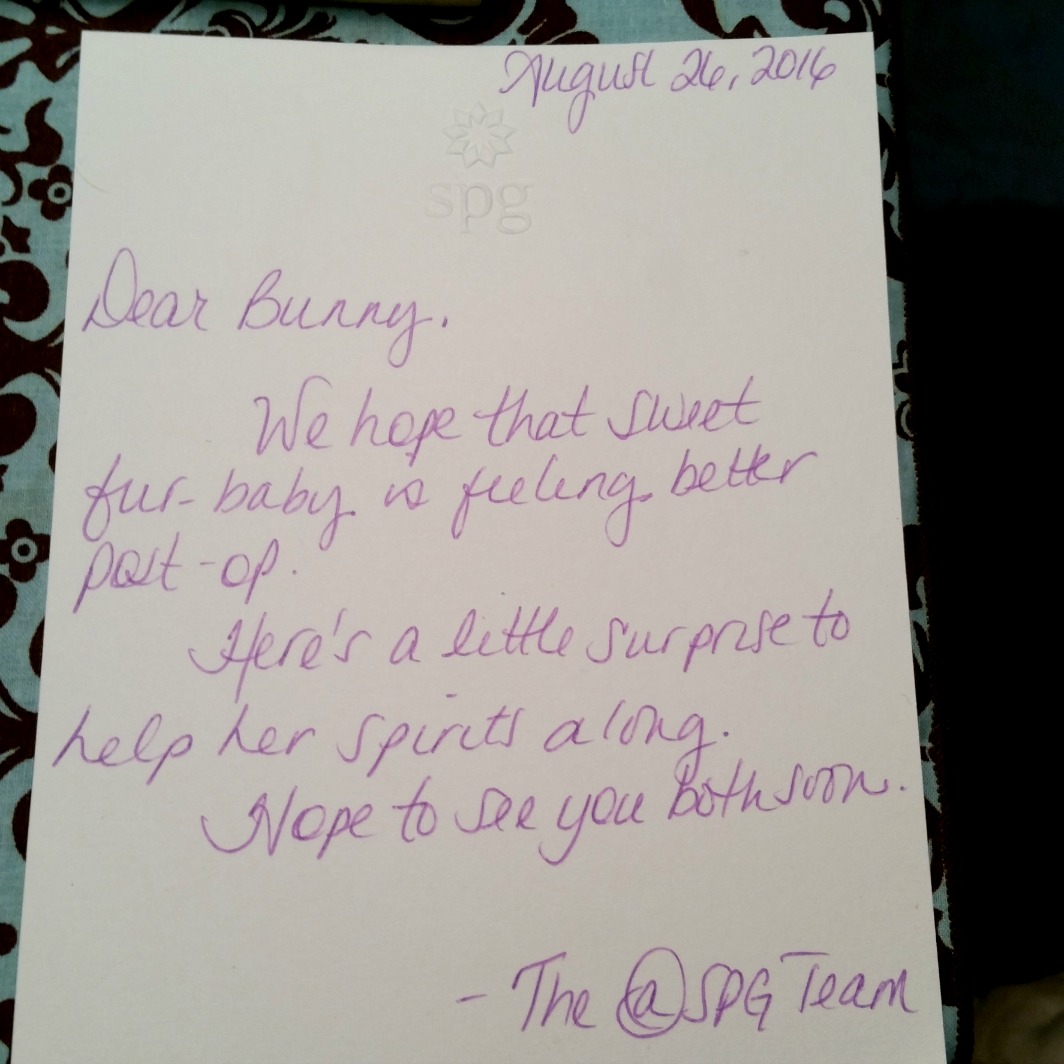 August 26, 2016
spg
Dear Bunny,
We hope that sweet
fur-baby is feeling better
post-op.
Here's a little surprise to
help her spirits along.
Hope to see you both soon.
- The @SPG Team